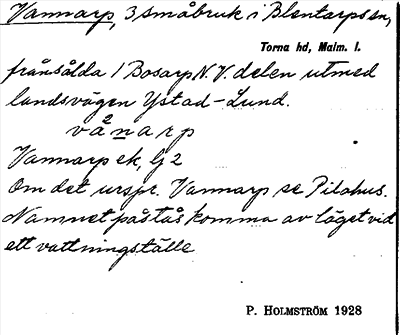 Vannarp, 3 småbruk i Blentarps sn,
Torna hd, Malm. l.
frånsålda / Bosarp N.V. delen utmed
landsvägen Ystad-Lund.
vånarp
Vannarp ek, G 2
Om det urspr. Vannarp se Pilahus.
Namnet påstås komma av läget vid
ett vattningställe
P. HOLMSTRÖM 1928